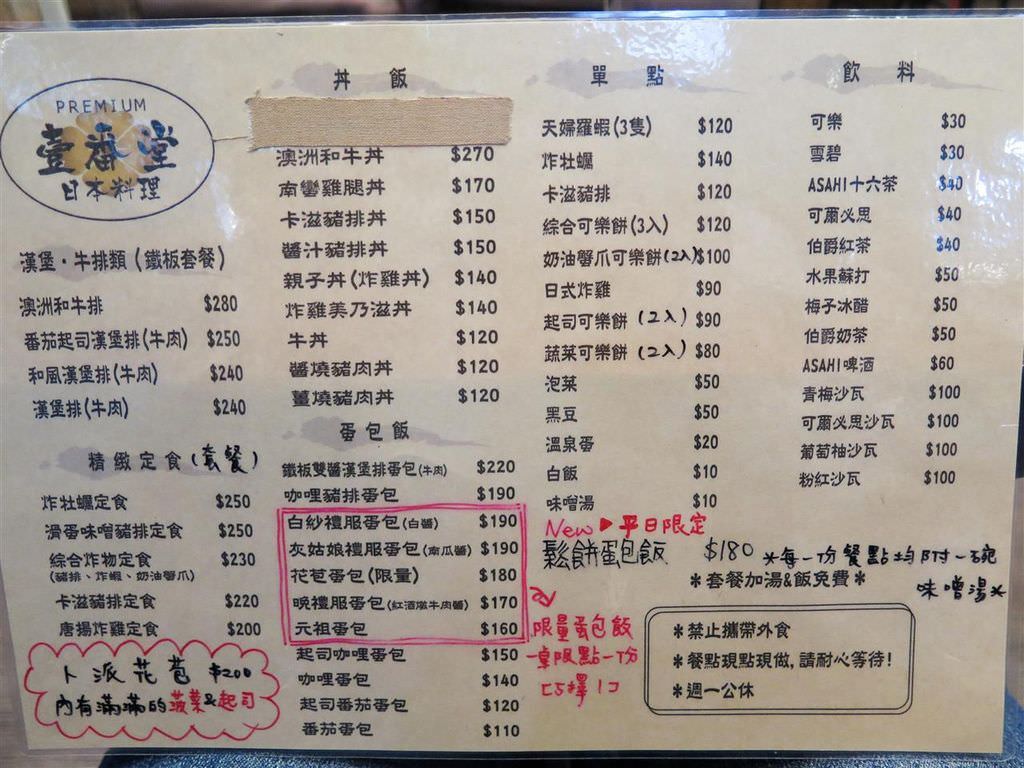 PREMIUM
壹番堂
日本料理
漢堡・牛排類(鐵板套餐)
澳洲和牛排 $280
番茄起司漢堡排(牛肉) $250
和風漢堡排(牛肉) $240
漢堡排(牛肉) $240
精緻定食(套餐)
炸牡蠣定食 $250
滑蛋味噌豬排定食 $250
綜合炸物定食 $230
(豬排、炸蝦、奶油蟹爪)
卡滋豬排定食 $220
唐揚炸雞定食 $200
卜派花苞 $200
內有滿滿的菠菜&起司
丼飯
澳洲和牛丼 $270
南蠻雞腿丼 $170
卡滋豬排丼 $150
醬汁豬排丼 $150
親子丼(炸雞丼) $140
炸雞美乃滋丼 $140
牛丼 $120
醬燒豬肉丼 $120
薑燒豬肉丼 $120
蛋包飯
鐵板雙醬漢堡排蛋包(牛肉) $220
咖哩豬排蛋包 $190
白紗禮服蛋包(白醬) $190
灰姑娘禮服蛋包(南瓜醬) $190
花苞蛋包(限量) $180
晚禮服蛋包(紅酒燉牛肉醬) $170
元祖蛋包 $160
起司咖哩蛋包 $150
咖哩蛋包 $140
起司番茄蛋包 $120
番茄蛋包 $110
限量蛋包飯
一桌限點一份
[5擇1]
單點
天婦羅蝦(3隻) $120
炸牡蠣 $140
卡滋豬排 $120
綜合可樂餅(3入) $120
奶油蟹爪可樂餅(2入) $100
日式炸雞 $90
起司可樂餅(2入) $90
蔬菜可樂餅(2入) $80
泡菜 $50
黑豆 $50
溫泉蛋 $20
白飯 $10
味噌湯 $10
New▶平日限定
鬆餅蛋包飯 $180
*每一份餐點均附一碗
味噌湯*
*套餐加湯&飯免費*
*禁止攜帶外食
*餐點現點現做,請耐心等待!
*週一公休
飲料
可樂 $30
雪碧 $30
ASAHI十六茶 $40
可爾必思 $40
伯爵紅茶 $40
水果蘇打 $50
梅子冰醋 $50
伯爵奶茶 $50
ASAHI啤酒 $60
青梅沙瓦 $100
可爾必思沙瓦 $100
葡萄柚沙瓦 $100
粉紅沙瓦 $100